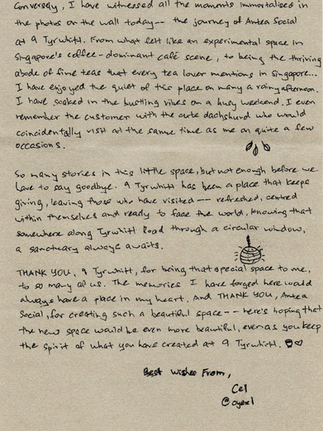 Conversely, I have witnessed all the moments immortalised in
the photos on the wall today -- the journey of Antea Social
at 9 Tyrwhitt. From what felt like an experimental space in
Singapore's coffee-dominant café scene, to being the thriving
abode of fine teas that every tea lover mentions in Singapore...
I have enjoyed the quiet of this place on many a rainy afternoon.
I have soaked in the bustling vibes on a busy weekend. I even
remember the customer with the cute dachshund who would
coincidentally visit at the same time as me on quite a few
occasions.
So many stories in this little space, but not enough before we
have to say goodbye. 9 Tyrwhitt has been a place that keeps
giving, leaving those who have visited -- refreshed, centred
within themselves and ready to face the world, knowing that
somewhere along Tyrwhitt Road through a circular window,
a sanctuary always awaits.
THANK YOU, 9 Tyrwhitt, for being that special space to me,
to so many of us. The memories I have forged here would
always have a place in my heart. And THANK YOU, Antea
Social, for creating such a beautiful space -- here's hoping that
the new space would be even more beautiful, even as you keep
the spirit of what you have created at 9 Tyrwhitt.
Best Wishes From,
Cel